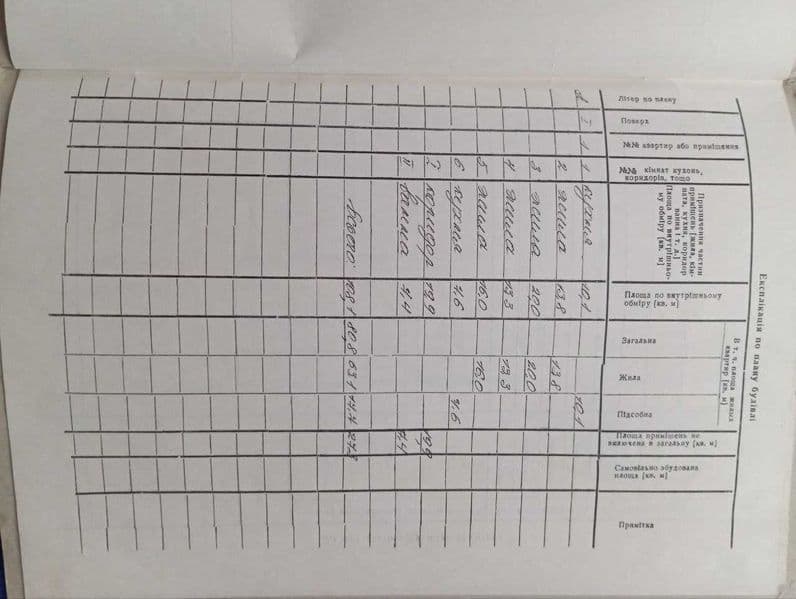 Експлікація по плану будівлі
Літер по плану
Поверх
№№ квартир або приміщення
№№ кімнат кухонь,
коридорів, тощо
Призначення частин
приміщень [жила, кім-
ната, кухня, коридор
ванна і т. д.]
Площа по внутрішньо-
му обміру [кв. м]
Площа по внутрішньому
обміру [кв. м]
В т. ч. площа жилих
квартир [кв. м]
Загальна
Жила
Підсобна
Площа приміщень не
включена в загальну [кв. м]
Самовільно збудована
площа [кв. м]
Примітка
А I 1 1 кухня 10,1 10,1
2 жила 13,8 13,8
3 жила 20,0 20,0
4 жила 13,3 13,3
5 жила 16,0 16,0
6 кухня 7,6 7,6
7 коридор 19,9 19,9
II 7,4 7,4
Всього: 108,1 80,8 63,1 17,7 27,3